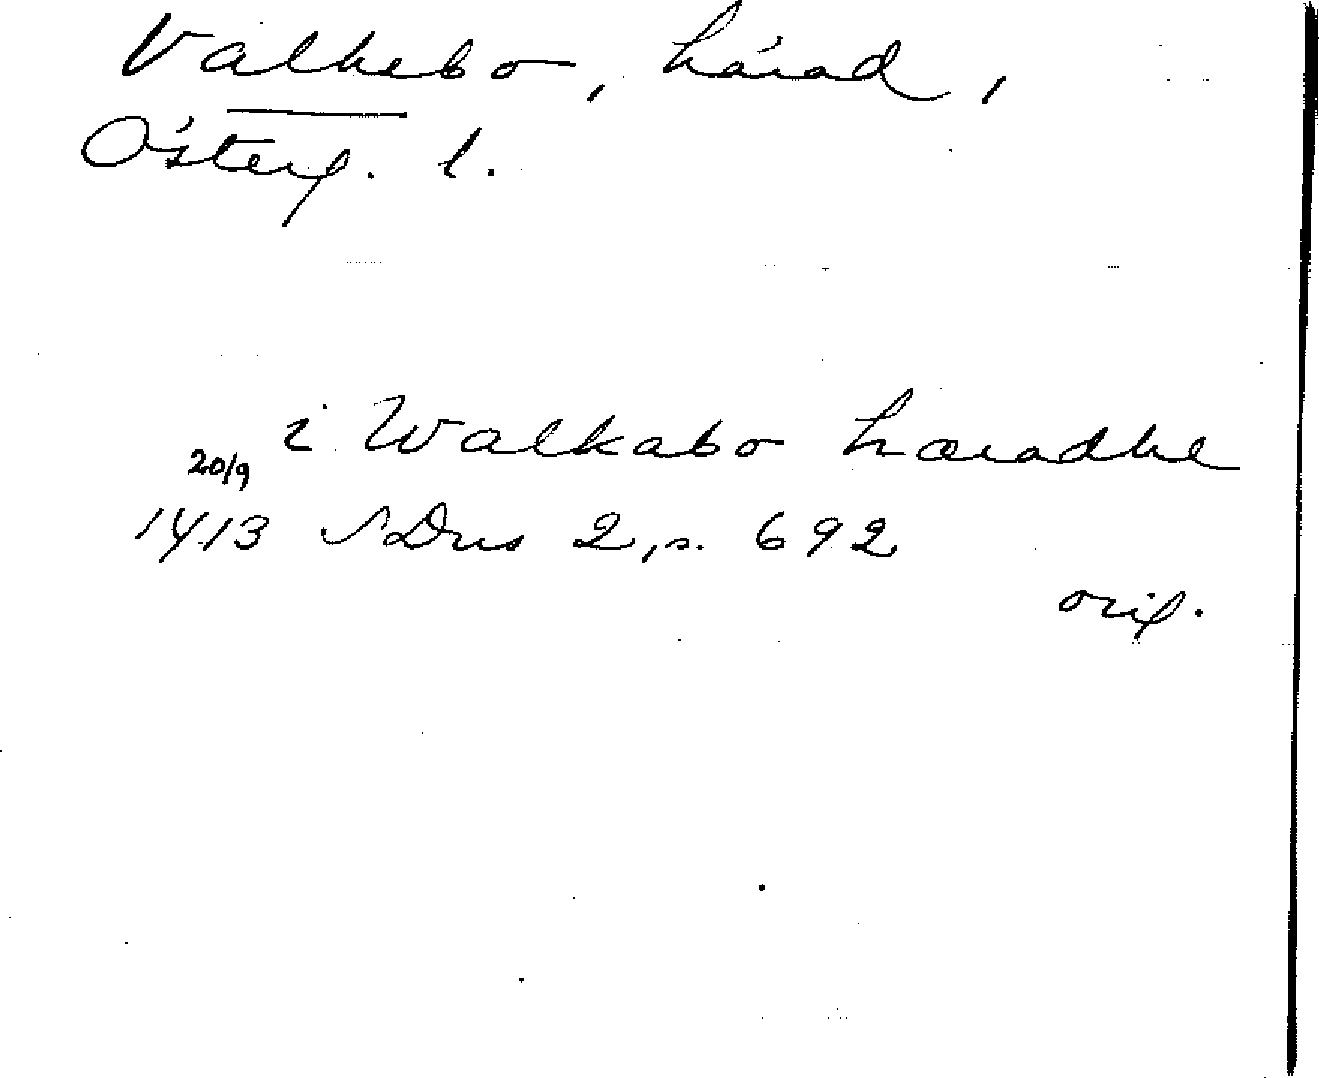 Valkebo, härad,
Österg. l.
i Walkabo hæradhe
20/9
1413 SDns 2, s. 692
orig.